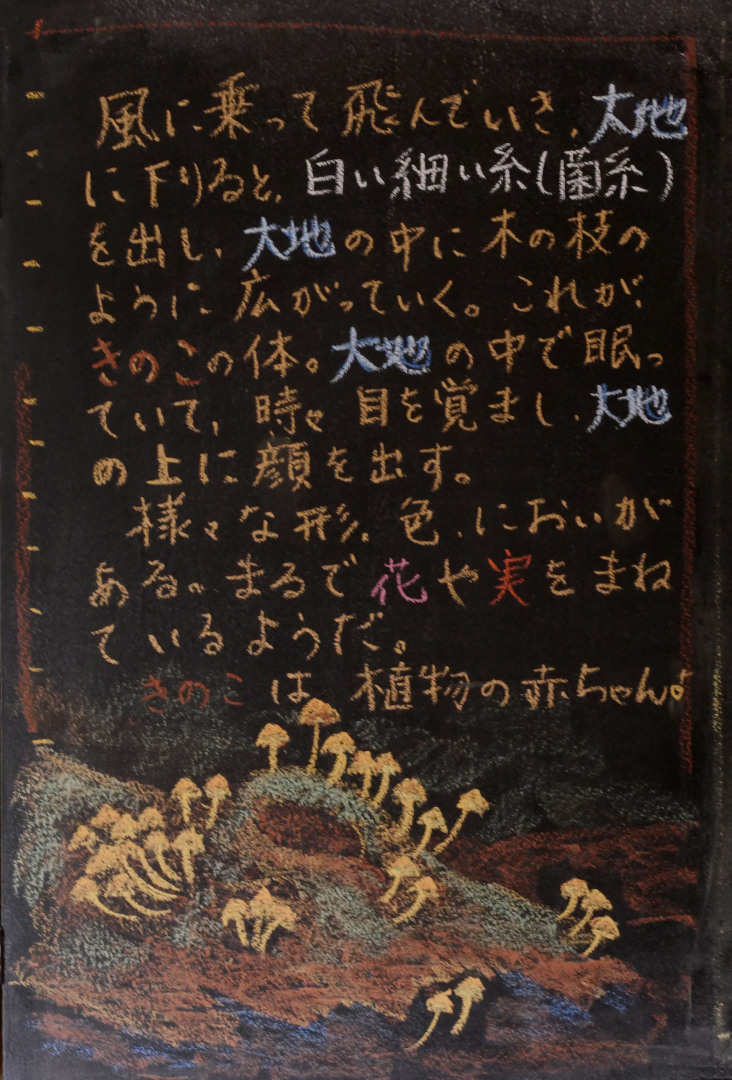 風に乗って飛んでいき、大地
に下りると、白い細い糸(菌糸)
を出し、大地の中に木の枝の
ように広がっていく。これが、
きのこの体。大地の中で眠っ
ていて、時々目を覚まし、大地
の上に顔を出す。
様々な形、色、においが
ある。まるで花や実をまね
ているようだ。
きのこは、植物の赤ちゃん。